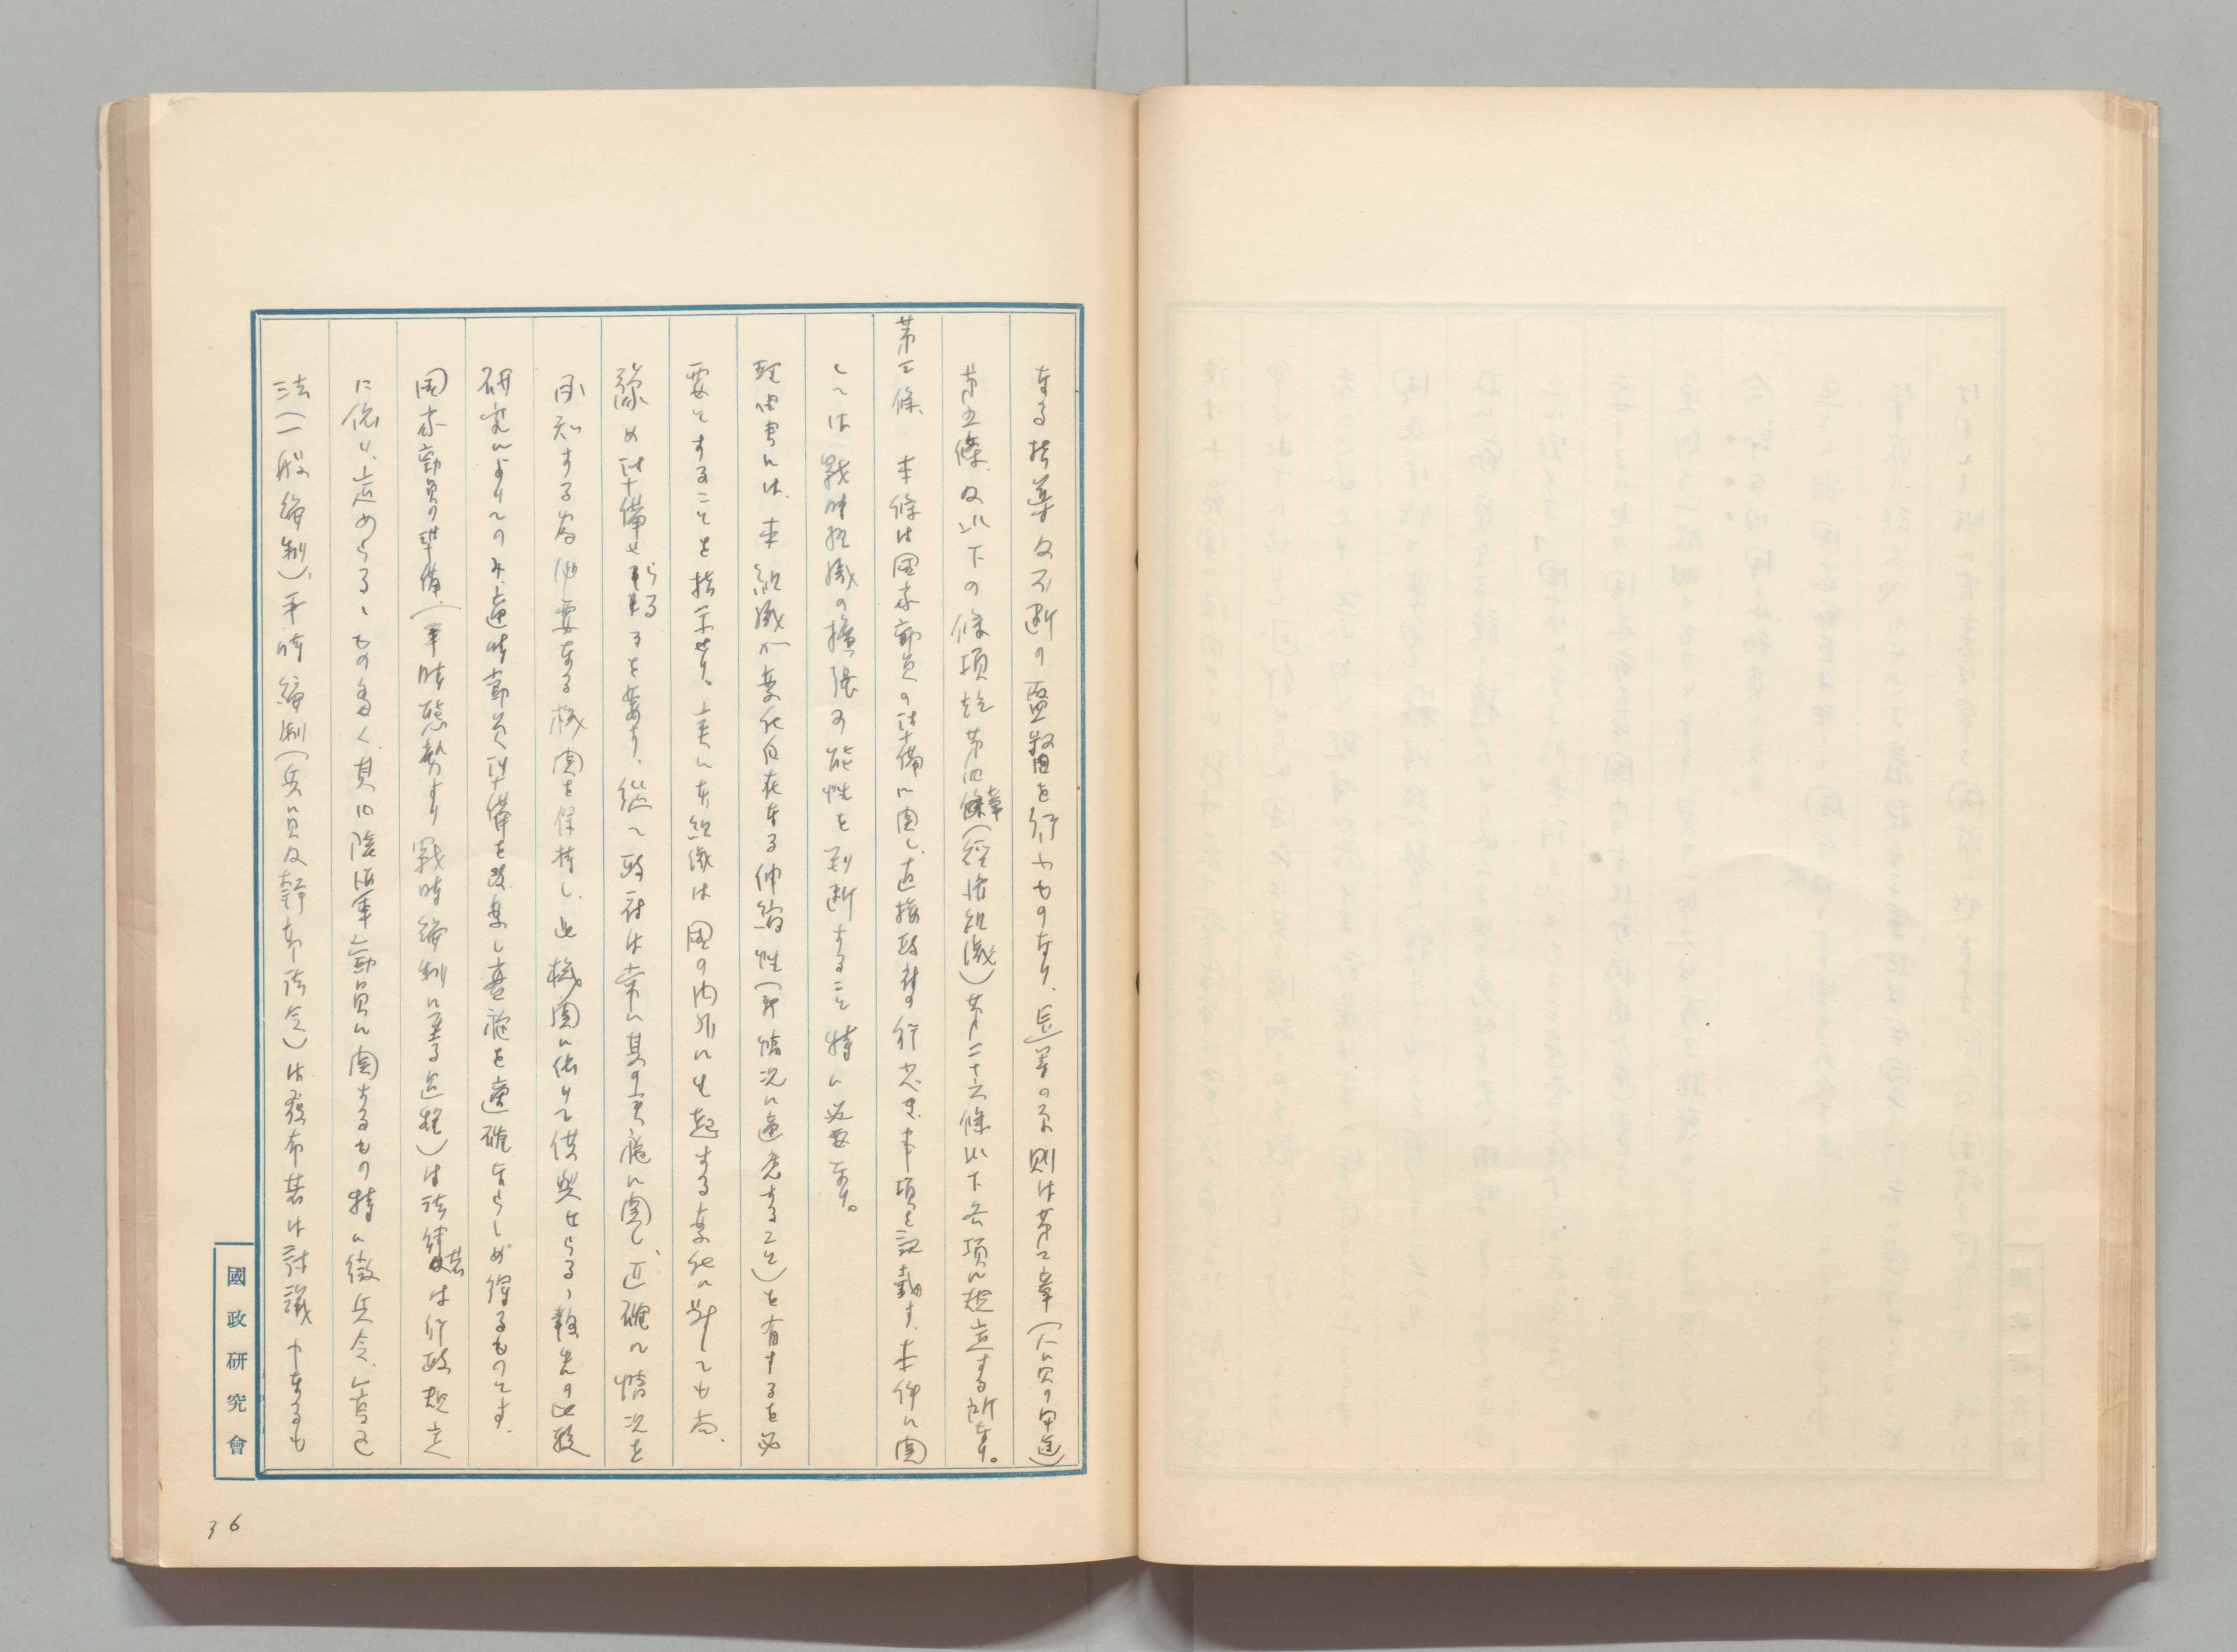 なる指導及不断の監督を行ふものなり、是等の原則は第二章(人員の用途)
第五條及以下の條項竝第四章(經濟組織)第二十六條以下各項に規定する所なり。
第三條、本條は国家動員の準備に関し、直接政府の行ふき本項を記載す、本件に関
しては戰時組織の擴張の可能性を判断すること特に必要なり。
理由書には、本組織が変化自在なる伸縮性(即情況に適應すること)を有するを必
要とすることを指示せり、実に本組織は国の内外にも起する変化に対しても尚、
豫め準備せらるるを要す、從て政府は常に其の実施に関し、正確の情況を
承知する為必要なる機関を保持し、此機関に依りて供與せらるゝ報告の比較
研究によりてのみ適時動員準備を改善し實施を適確ならしめ得るものとす。
国家動員の準備(平時態勢より戰時編制に至る過程)は法律若は行政規定
に依り、定めらるゝもの多く、其の陸海軍動員に関するもの特に徴兵令、宣言
法(一般編制)、平時編制(兵員及幹部法令)は発布若は討議中なるも
國政研究會
36